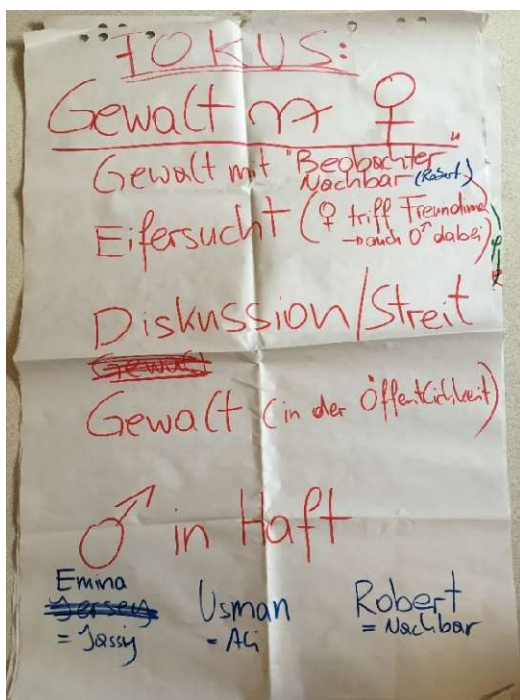 FOKUS:
Gewalt ♀
Gewalt mit "Beobachter"
Nachbar (Robert)
Eifersucht (♀ triff Freundinnen
→ auch ♂ dabei)
Diskussion/Streit
Gewalt
Gewalt (in der Öffentlichkeit)
♂ in Haft
Emina
= Jassy
Usman
= Ali
Robert
= Nachbar